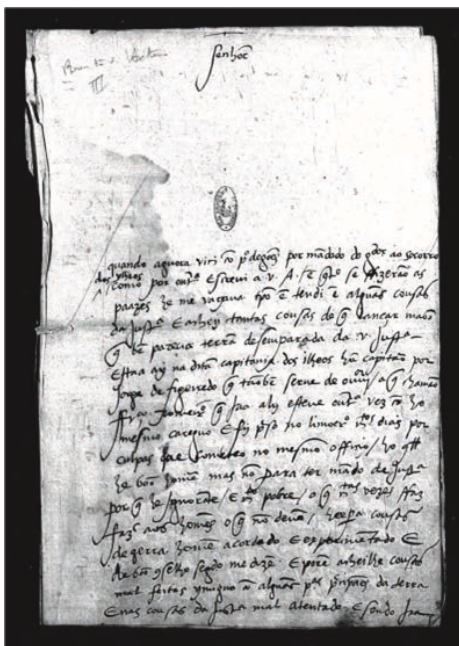 Senhor
quando aguora vim com pº de goes por mãdado de ao socorro
dos Ilheos como por outra escrevi a v. A. e se fizerão as
pazes he me vagava tpo ẽ tendi ẽ alguãs cousas
da justª E achey tantas cousas de q lançar maão
q bẽ parecia terra desemparada da v justª
Estaa ay na dita capitania dos ilheos hũ capitão por
Jorge de figueiredo q tãbẽ serve de ouvidor a q chamão
frco Romeiro q jaa aly esteve outra vez cõ ho
mesmo careguo E foy preso no limoeiro dias por
culpas que cometeo no mesmo officio / ho qll
he bõ homẽ mas nõ para ter mãdo de justª
por q he ignorãte / E pobre / o q vezes faz
fazer aos homẽs o q não devẽ / he pera cousas
de gerra homẽ acordado E exprimẽtado E
de bõ cõselho segdo me dizẽ E porẽ acheilhe cousas
mal feitas cõ alguãs da terra
E nas cousas da justª mal atentado E sendo